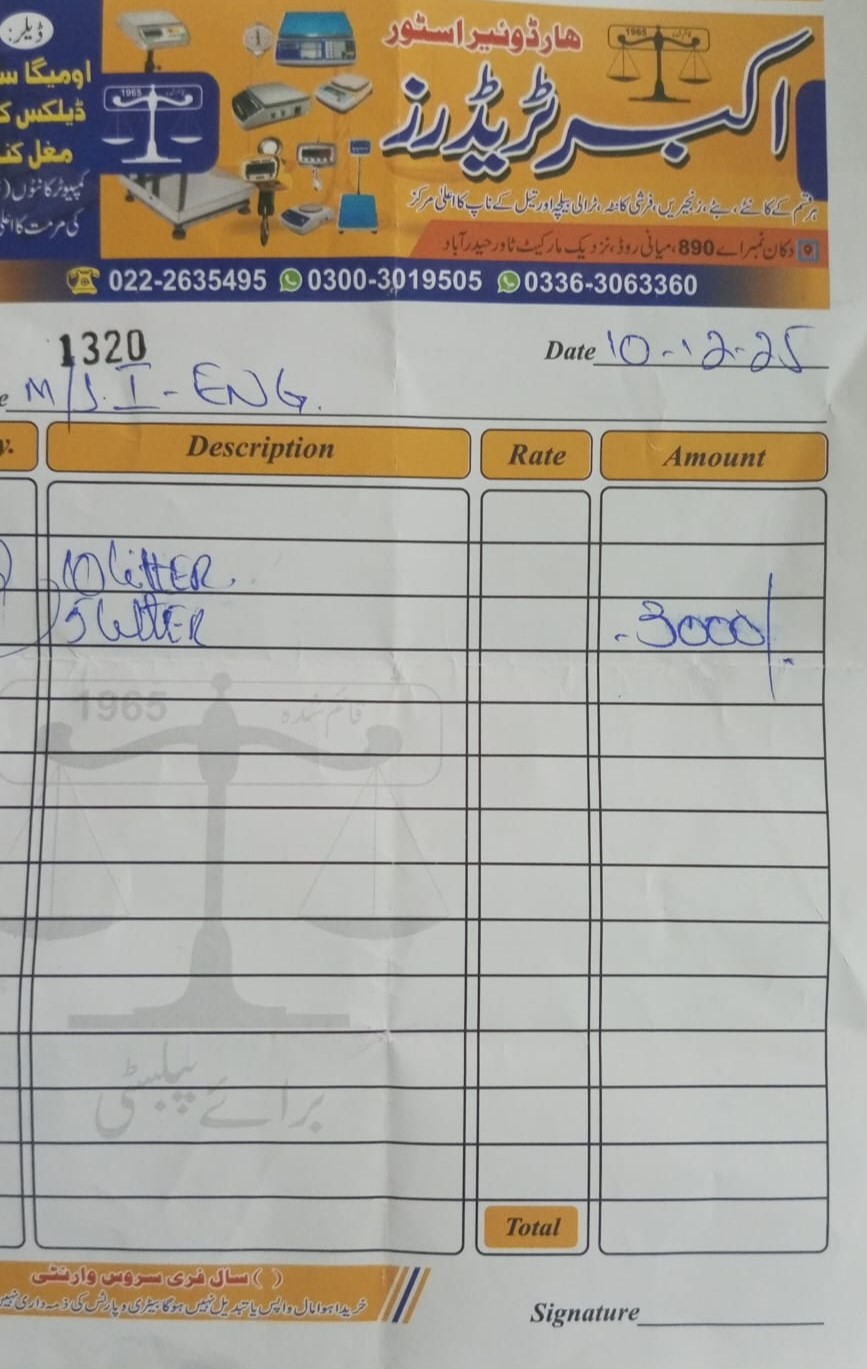 ڈیلر:
ہارڈوئیر اسٹور
1965
اکبر ٹریڈرز
اومیگا
ڈیلکس
مغل
1965
کمپیوٹر کانٹوں
کی مرمت کا
ہر قسم کے کانٹے، بٹے، زنجیریں، فرشی کانٹہ، ٹرالی بیلچے اور تیل کے ناپ کا اعلیٰ مرکز
دکان نمبر اے 890، میانی روڈ، نزدیک مارکیٹ ٹاور حیدرآباد
022-2635495 0300-3019505 0336-3063360
1320
Date 10-12-25
M/S. I-ENG.
Description Rate Amount
10 litter
5 litter 3000/-
1965 قائم شدہ
برائے پبلسٹی
Total
( ) سال فری سروس وارنٹی
خریدا ہوا مال واپس یا تبدیل نہیں ہوگا بیٹری و پارٹس کی ذمہ داری نہیں
Signature